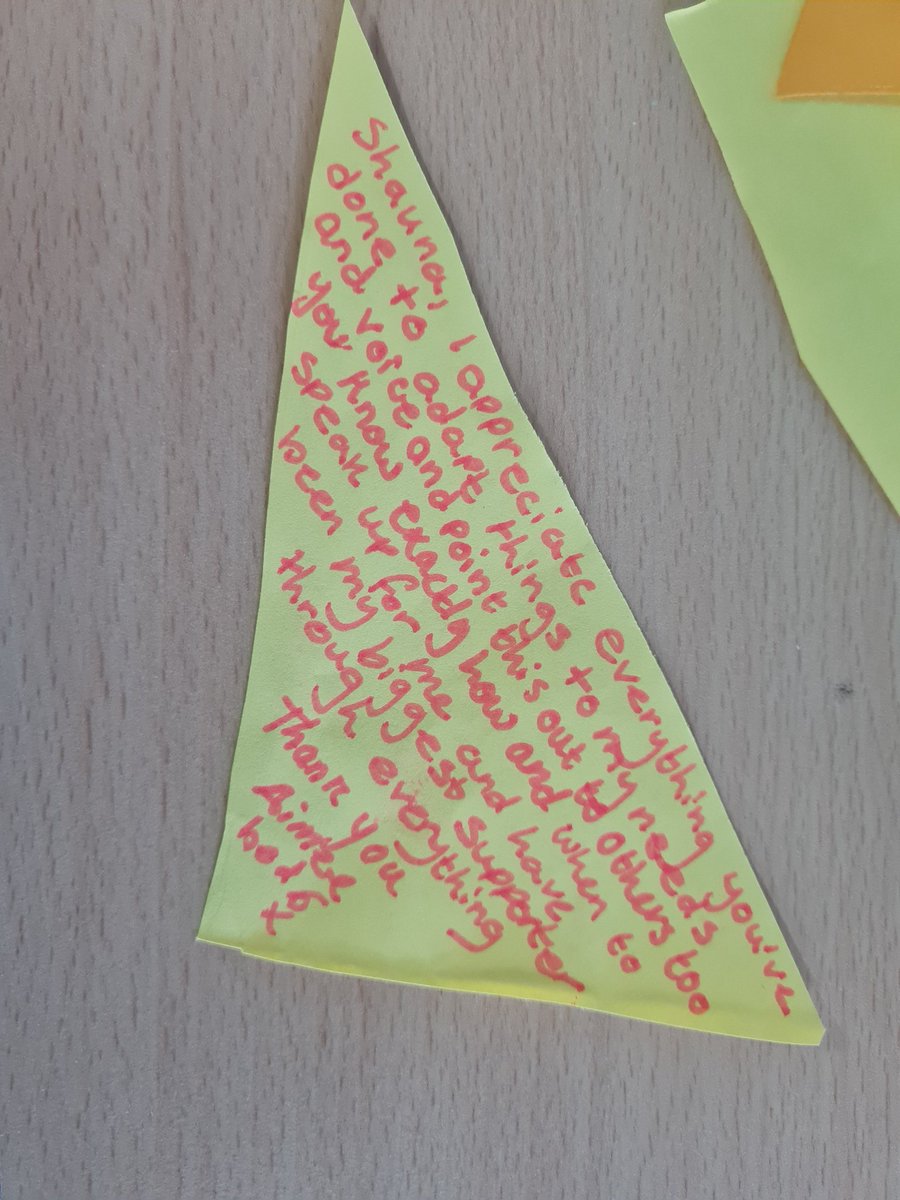 Shauna, I appreciate everything you've
done to adapt things to my needs
and voice and point this out to others too
you know exactly how and when to
speak up for me and have
been my biggest supporter
through everything
Thank you
Aimee
bed 6
x